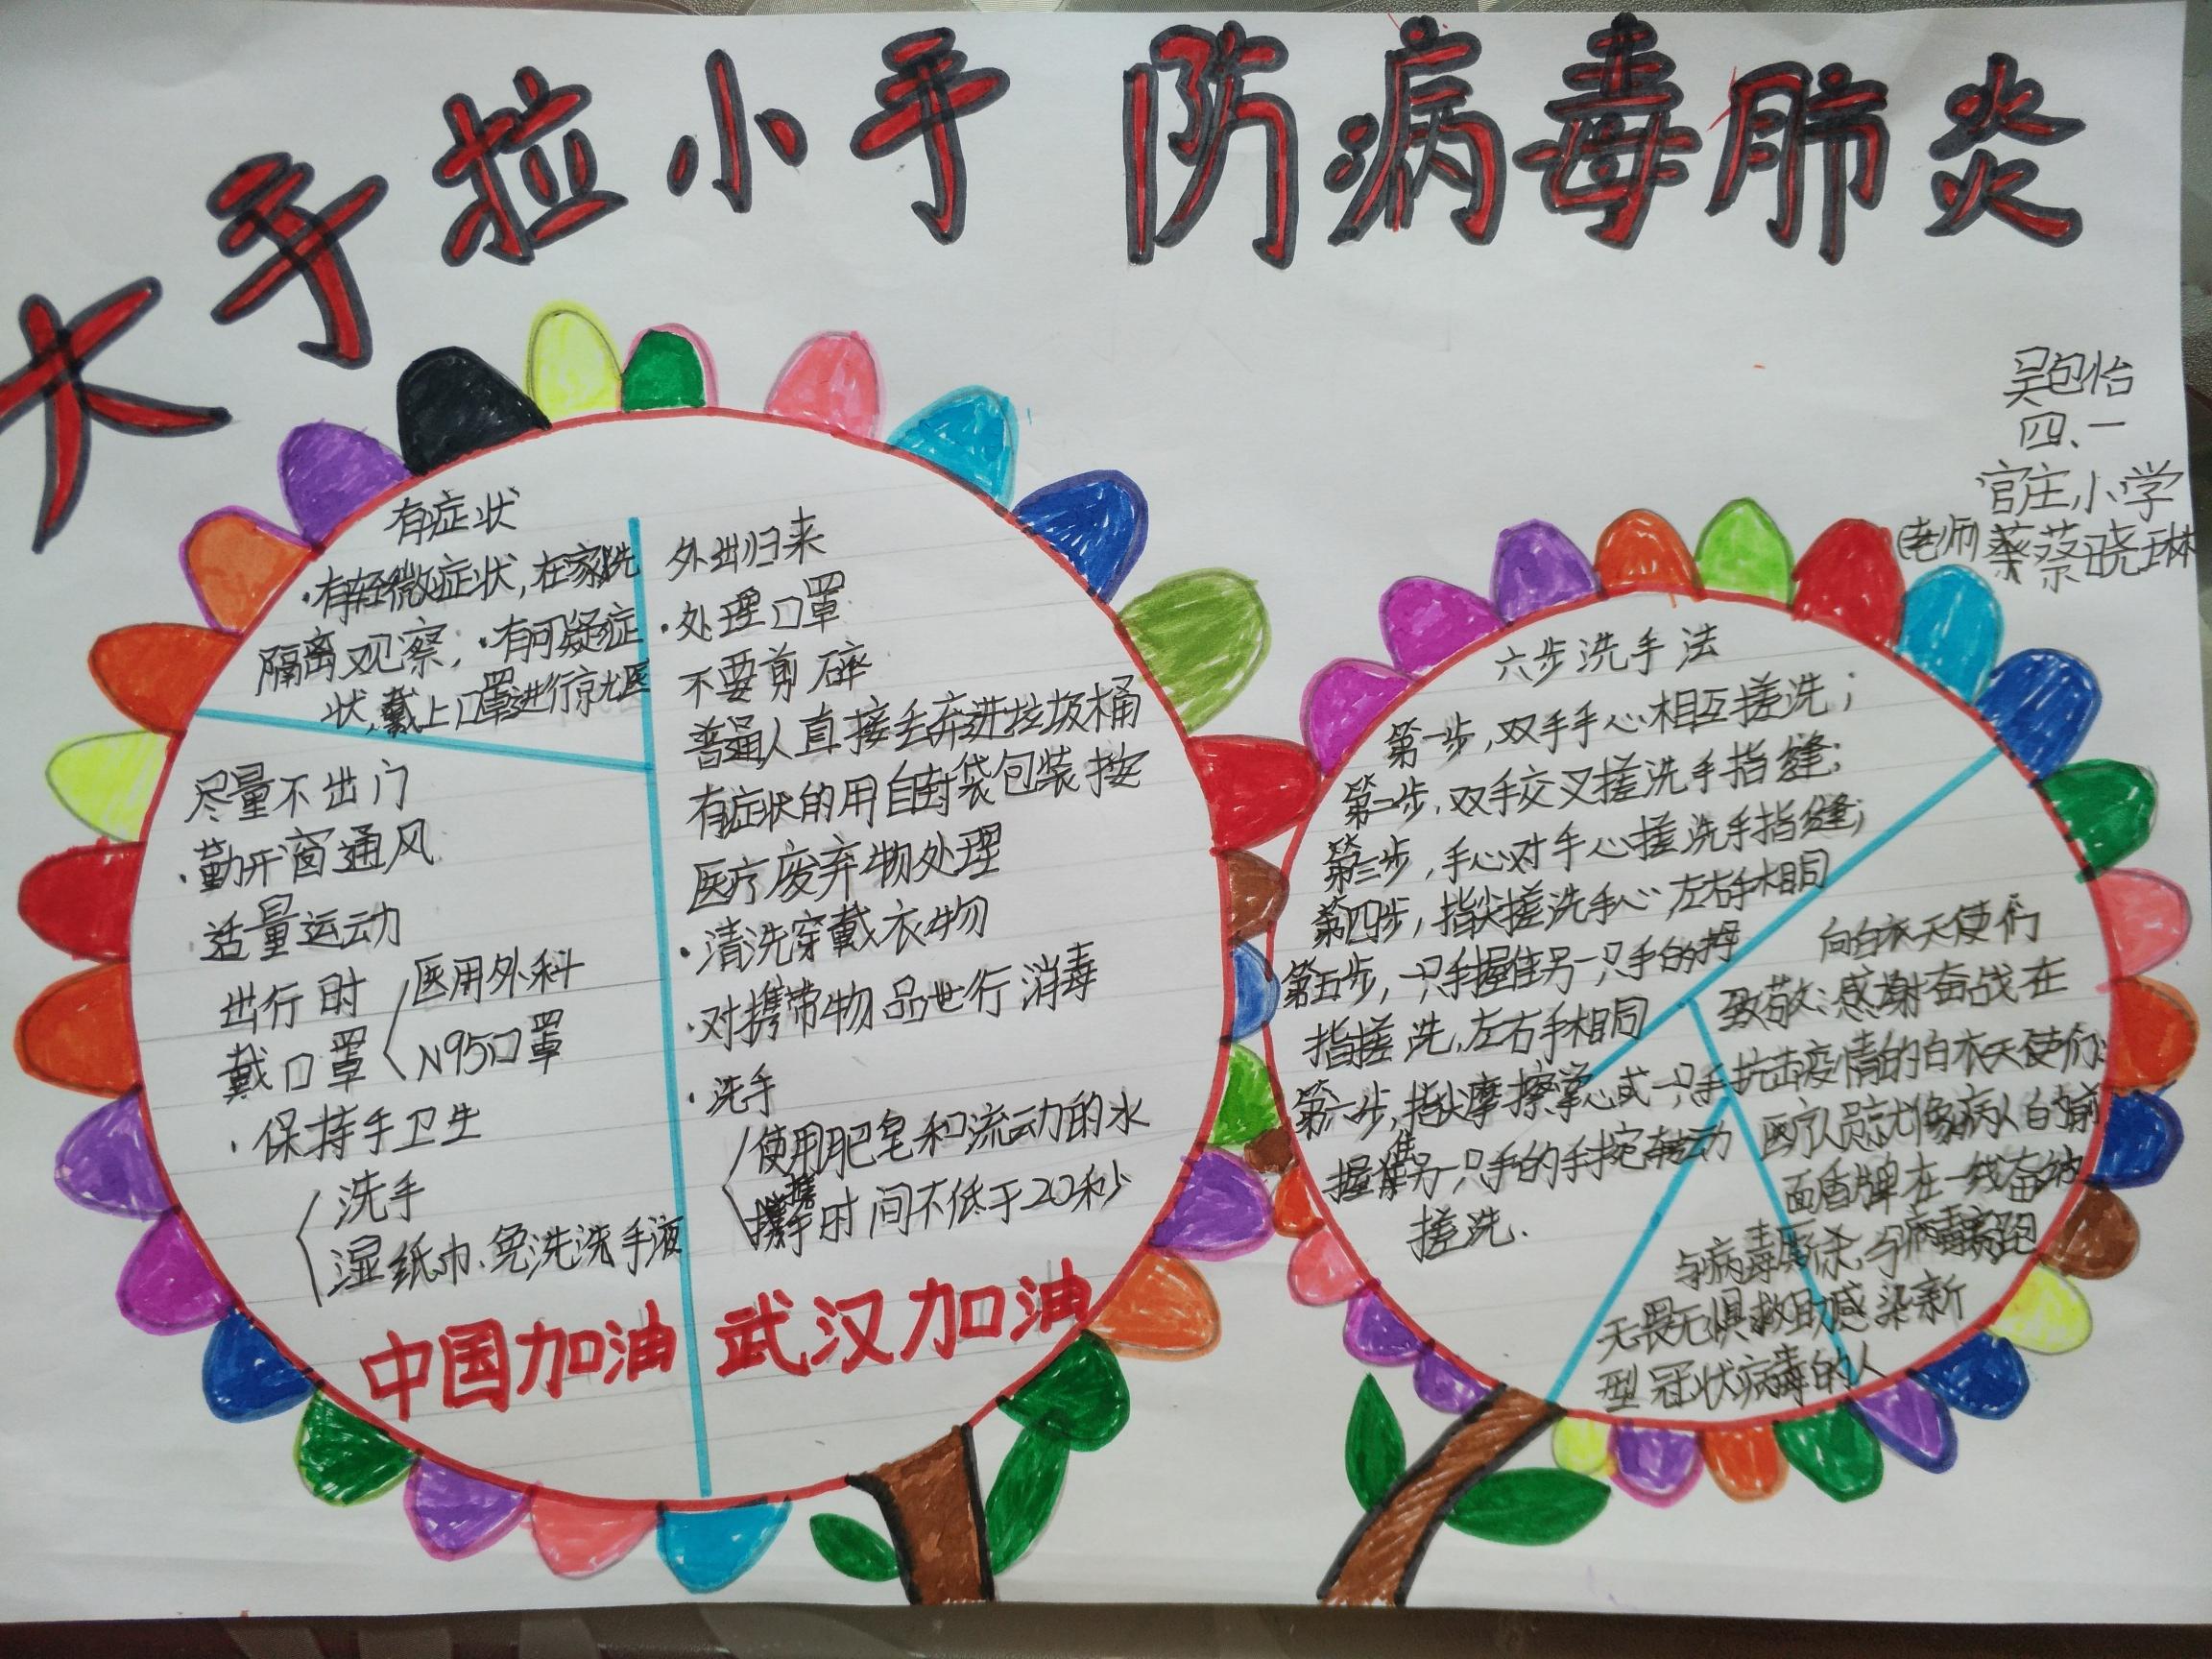 大手拉小手 防病毒肺炎
吴包怡
四、一
官庄小学
(老师)蔡蔡晓琳
有症状
·有轻微症状,在家洗
隔离观察,·有可疑症
状,戴上口罩进行就医
尽量不出门
·勤开窗通风
适量运动
出行时
戴口罩
医用外科
N95口罩
·保持手卫生
洗手
湿纸巾、免洗洗手液
中国加油
外出归来
·处理口罩
不要剪碎
普通人直接丢弃进垃圾桶
有症状的用自封袋包装按
医疗废弃物处理
·清洗穿戴衣物
·对携带物品进行消毒
·洗手
使用肥皂和流动的水
搓手时间不低于20秒
武汉加油
六步洗手法
第一步,双手手心相互搓洗;
第二步,双手交叉搓洗手指缝;
第三步,手心对手心搓洗手指缝;
第四步,指尖搓洗手心左右手相同
第五步,一只手握住另一只手的拇
指搓洗,左右手相同
第六步,指尖摩擦掌心或一只手
握住另一只手的手挖转动
搓洗.
向白衣天使们
致敬:感谢奋战在
抗击疫情的白衣天使们:
医疗人员就像病人的前
面盾牌在一线奋战
与病毒厮杀,与病毒
无畏无惧救助感染新
型冠状病毒的人